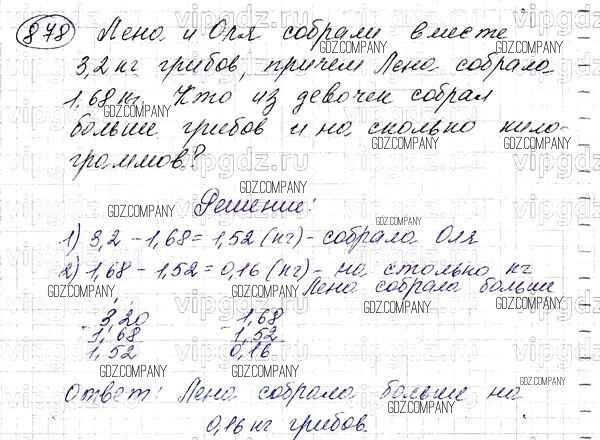 878 Лена и Оля собрали вместе
3,2 кг грибов, причем Лена собрала
1,68 кг. Кто из девочек собрал
больше грибов и на сколько кило-
граммов?
Решение:
1) 3,2 - 1,68 = 1,52 (кг) - собрала Оля
2) 1,68 - 1,52 = 0,16 (кг) - на столько кг
Лена собрала больше
- 3,20 - 1,68
1,68 1,52
1,52 0,16
Ответ: Лена собрала больше на
0,16 кг грибов.
vipgdz.ru
GDZ.COMPANY